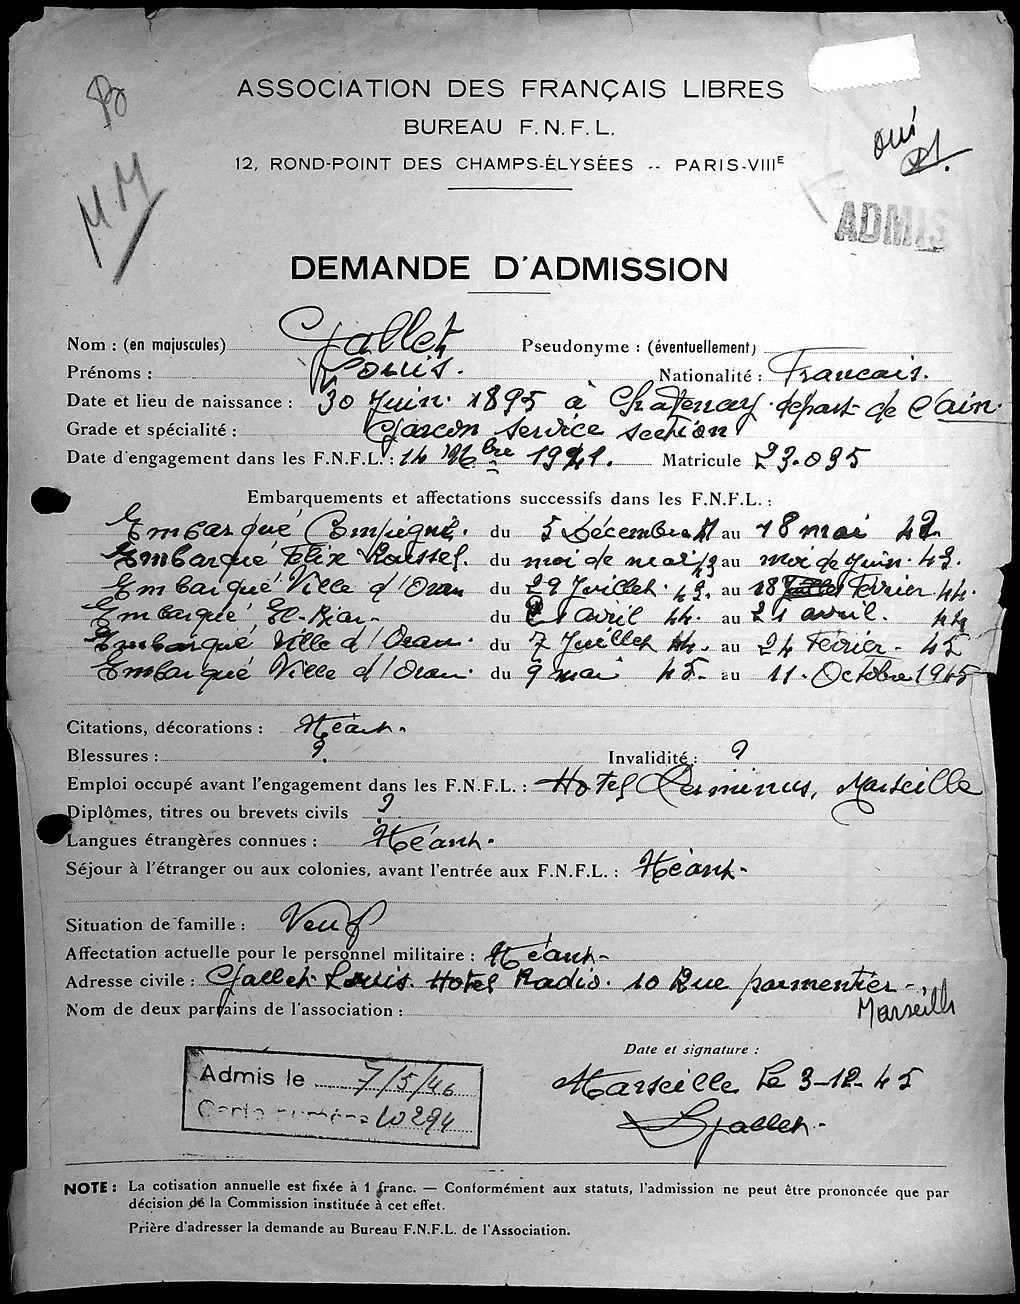 ASSOCIATION DES FRANÇAIS LIBRES
BUREAU F.N.F.L.
12, ROND-POINT DES CHAMPS-ÉLYSÉES -- PARIS-VIIIE
M.M
oui
ADMIS
DEMANDE D'ADMISSION
Nom : (en majuscules) Gallet Pseudonyme : (éventuellement)
Prénoms : Louis. Nationalité : Francais.
Date et lieu de naissance : 30 Juin. 1895 à Chatenay. depart. de l'ain.
Grade et spécialité : Garcon service section
Date d'engagement dans les F.N.F.L. : 14 9bre 1941. Matricule 23.035
Embarquements et affectations successifs dans les F.N.F.L. :
Embarqué Compiegne. du 5 Décembre 41 au 18 mai 42.
Embarqué Felix Roussel. du moi de mai 43 au moi de Juin. 43.
Embarqué Ville d'Oran du 29 Juillet. 43. au 18 Février 44.
Embarqué El-Biar. du 1 avril 44. au 21 avril. 44
Embarqué Ville d'Oran. du 7 Juillet 44. au 24 Février. 45
Embarqué Ville d'Oran. du 9 mai 45. au 11. Octobre 1945
Citations, décorations : Néant.
Blessures : ? Invalidité : ?
Emploi occupé avant l'engagement dans les F.N.F.L. : Hotel Terminus, Marseille
Diplômes, titres ou brevets civils ?
Langues étrangères connues : Néant.
Séjour à l'étranger ou aux colonies, avant l'entrée aux F.N.F.L. : Néant.
Situation de famille : Veuf
Affectation actuelle pour le personnel militaire : Néant-
Adresse civile : Gallet Louis. Hotel Radio. 10 Rue parmentier -
Marseille
Nom de deux parrains de l'association :
Date et signature :
Marseille le 3-12-45
LGallet.
Admis le 7/5/46
Carte numéro 10294
NOTE : La cotisation annuelle est fixée à 1 franc. — Conformément aux statuts, l'admission ne peut être prononcée que par
décision de la Commission instituée à cet effet.
Prière d'adresser la demande au Bureau F.N.F.L. de l'Association.